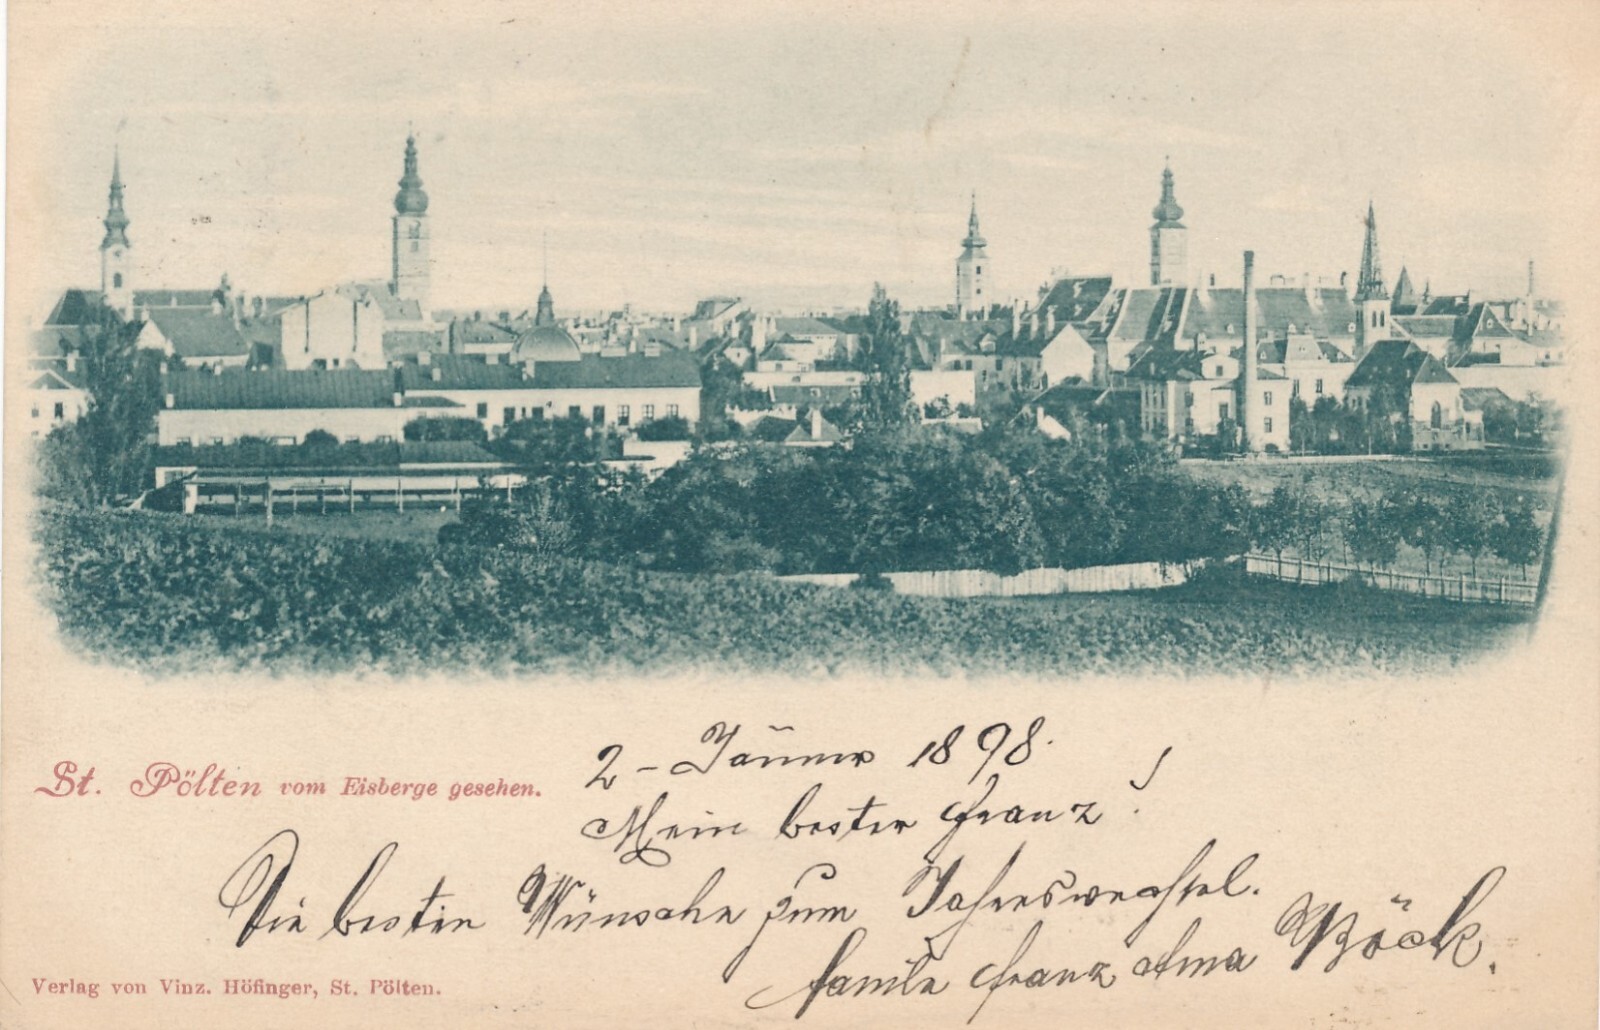 St. Pölten vom Eisberge gesehen.
2 - Jänner 1898.
Mein bester Franz!
Die besten Wünsche zum Jahreswechsel.
Familie Franz Böck.
Verlag von Vinz. Höfinger, St. Pölten.